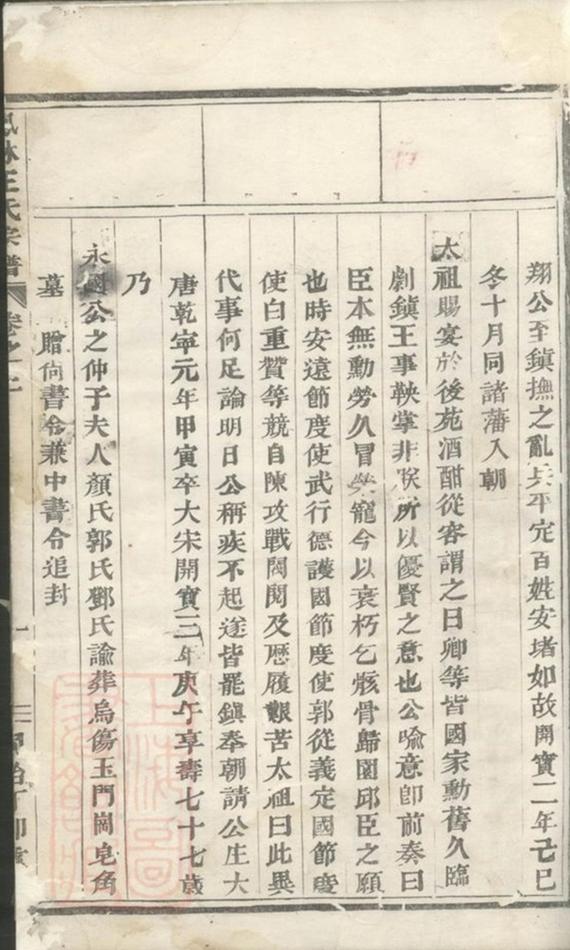 翔公至鎮撫之亂兵平定百姓安堵如故開寶二年己巳
冬十月同諸藩入朝
太祖賜宴於後苑酒酣從容謂之曰卿等皆國家勳舊久臨
劇鎮王事鞅掌非朕所以優賢之意也公喻意卽前奏曰
臣本無勳勞久冒榮寵今以衰朽乞骸骨歸園邱臣之願
也時安遠節度使武行德護國節度使郭從義定國節度
使白重贊等競自陳攻戰閥閱及歷履艱苦太祖曰此異
代事何足論明日公稱疾不起遂皆罷鎮奉朝請公生大
唐乾寧元年甲寅卒大宋開寶三年庚午享壽七十七歲
乃
永國公之仲子夫人顏氏郭氏鄧氏諭葬烏傷玉門崗皂角
墓 贈尙書令兼中書令追封
林王氏宗譜 卷之